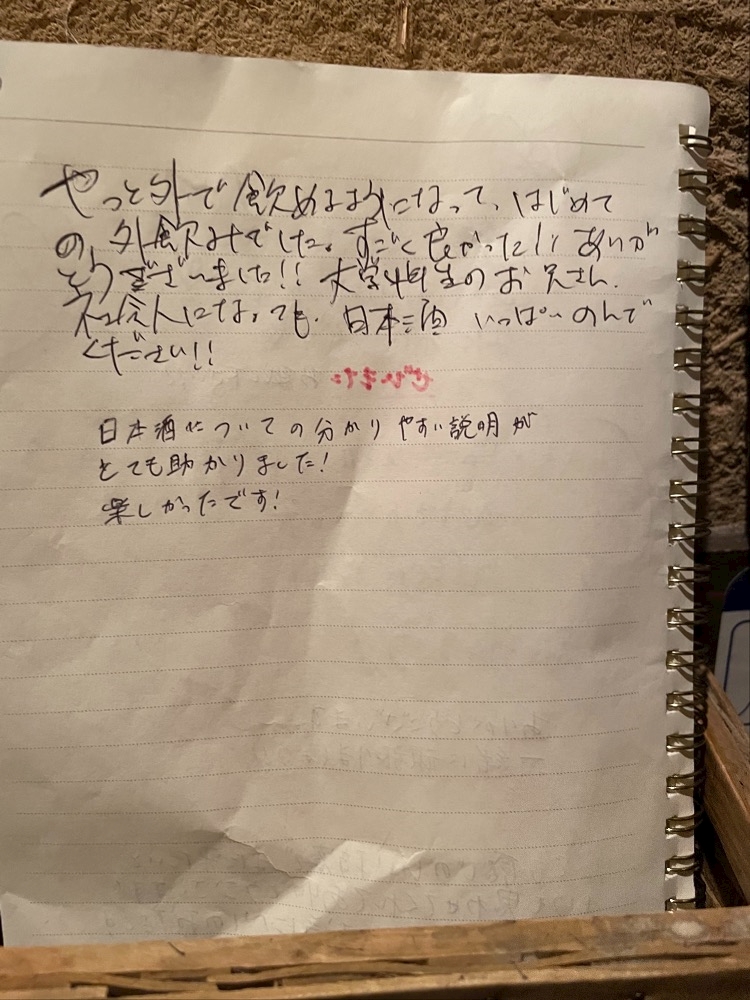 やっと外で飲める様になって、はじめて
の、外飲みでした。すごく良かった!! ありが
とうございました!! 大学4年生のお兄さん、
社会人になっても、日本酒 いっぱいのんで
ください!!
ぜひまた
日本酒についての分かりやすい説明が
とても助かりました!
楽しかったです!